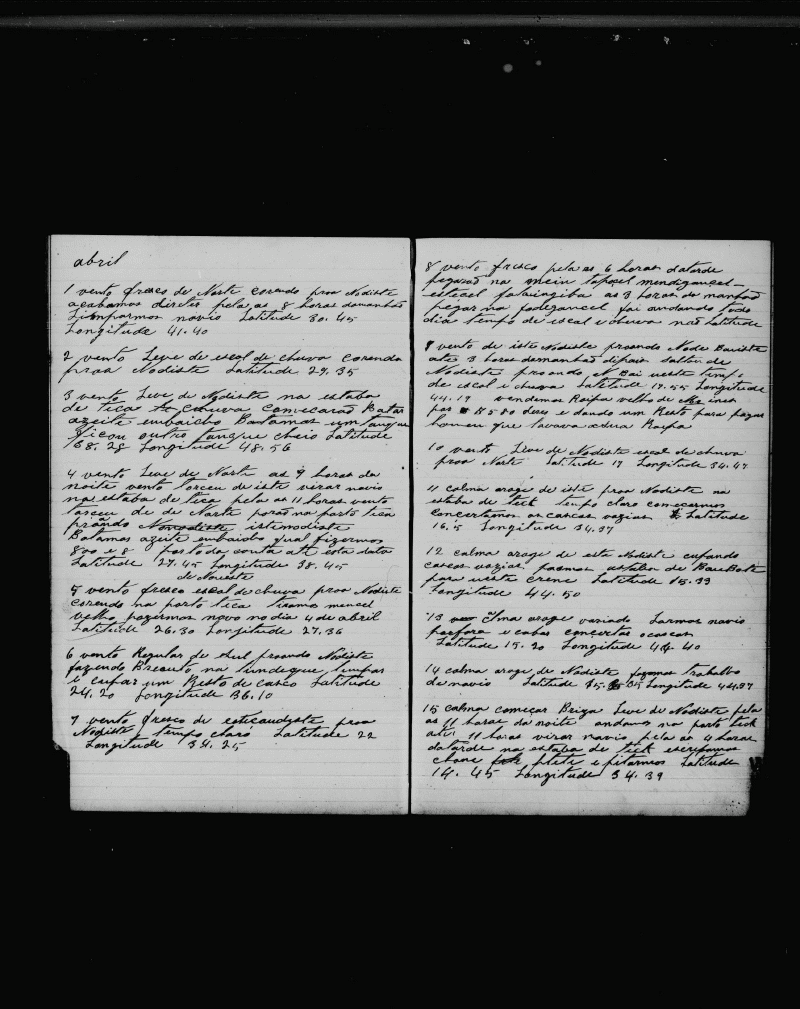 abril
1 vento fresco de Norte corendo proa Nodiste
acabamos diretes pela as 8 horas damanhã
Limparmos navio Latitude 30.45
Longitude 41.40
2 vento Leve de escal de chuva corendo
proa Nodiste Latitude 29.35
3 vento Leve de Nodiste na estaba
de tica chuva comecarão Batar
azeite embaicho Batamos um tanque
ficou outro tanque cheio Latitude
28 Longitude 48.56
4 vento Leve de Norte as 9 horas da
noite vento torceu de iste virar navio
na estaba de tica pela as 11 horas vento
torceu de de Norte porão na porto tica
prando Nonodiste istenodiste
Batamos azeite embaicho qual fizermos
800 e 8 por toda conta até esta data
Latitude 27.45 Longitude 38.45
de Noreste
5 vento fresco escal de chuva proa Nodiste
corendo na porto tica
velho pozermos novo no dia 4 de abril
Latitude 26.30 Longitude 27.36
6 vento Regular de sul proando Nodiste
fazendo na limpar
e cufar um Resto de casco Latitude
24.20 Longitude 36.10
7 vento fresco de proa
Nodiste tempo claro Latitude 22
Longitude 34.25
8 vento fresco pela as 6 horas datarde
pegarão na
as 3 horas da manhão
pegar na foi andando todo
dia tempo de escal e chuva não Latitude
9 vento de iste Nodiste proando
até 3 horas damanhão dipois saltou de
Nodiste proando N. tempo
de escal e chuva Latitude 19.55 Longitude
44.19 vendemos Roipa velho de
por 500 e dando um Resto para pagar
homem que lavava Roipa
10 vento Leve de Nodiste escal de chuva
proa Norte Latitude 17 Longitude 34.47
11 calma arage de iste proa Nodiste na
estaba de tick tempo claro comecarmos
concertamos as cascos vazias Latitude
16.5 Longitude 34.37
12 calma arage de este Nodiste cufando
cascos vazias estaba de
para Latitude 15.33
Longitude 44.50
13 arage variado Larmos navio
e cabar concertar o cascos
Latitude 15.20 Longitude 44.40
14 calma arage de Nodiste fizemos trabalho
de navio Latitude 15.05 Longitude 44.37
15 calma começar Briza Leve de Nodiste pela
as 11 horas da noite andamos na porto tick
até 11 horas virar navio pela as 4 horas
datarde na estaba de tick
e pitarmos Latitude
14.45 Longitude 34.39